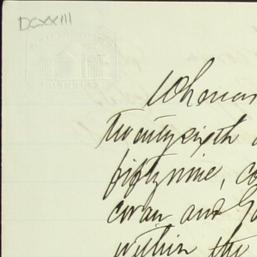 DCXXIII
Whereas
twenty sixth
fifty nine, co
covan and Go
within the